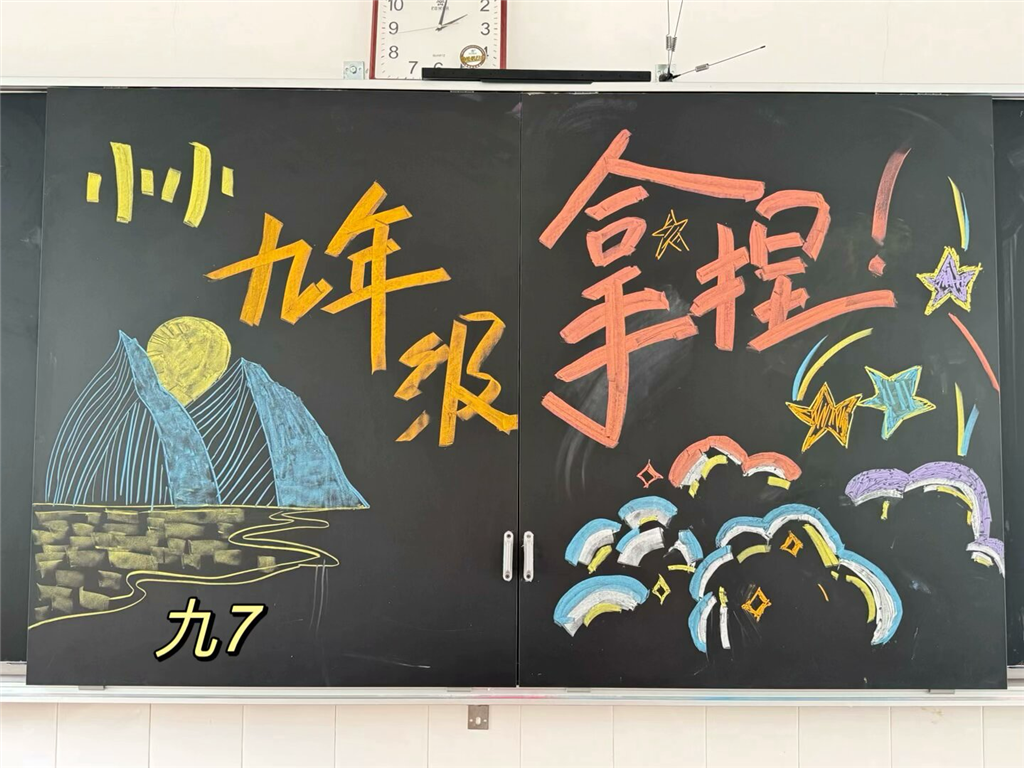 10 2
9 3
8 4
7 6
小小
九年级
拿捏!
九7